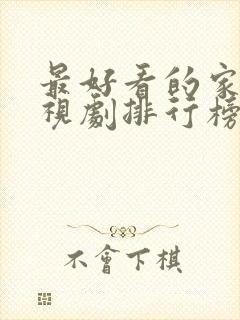 最好看的家
視劇排行榜
不會下棋